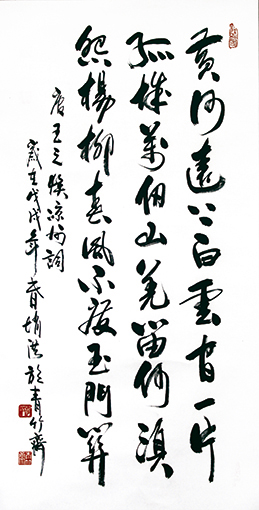 黄河遠上白雲间一片
孤城萬仞山羌笛何須
怨楊柳春風不度玉門關
唐王之渙凉州詞
歲在戊戌年春洪於青竹齋